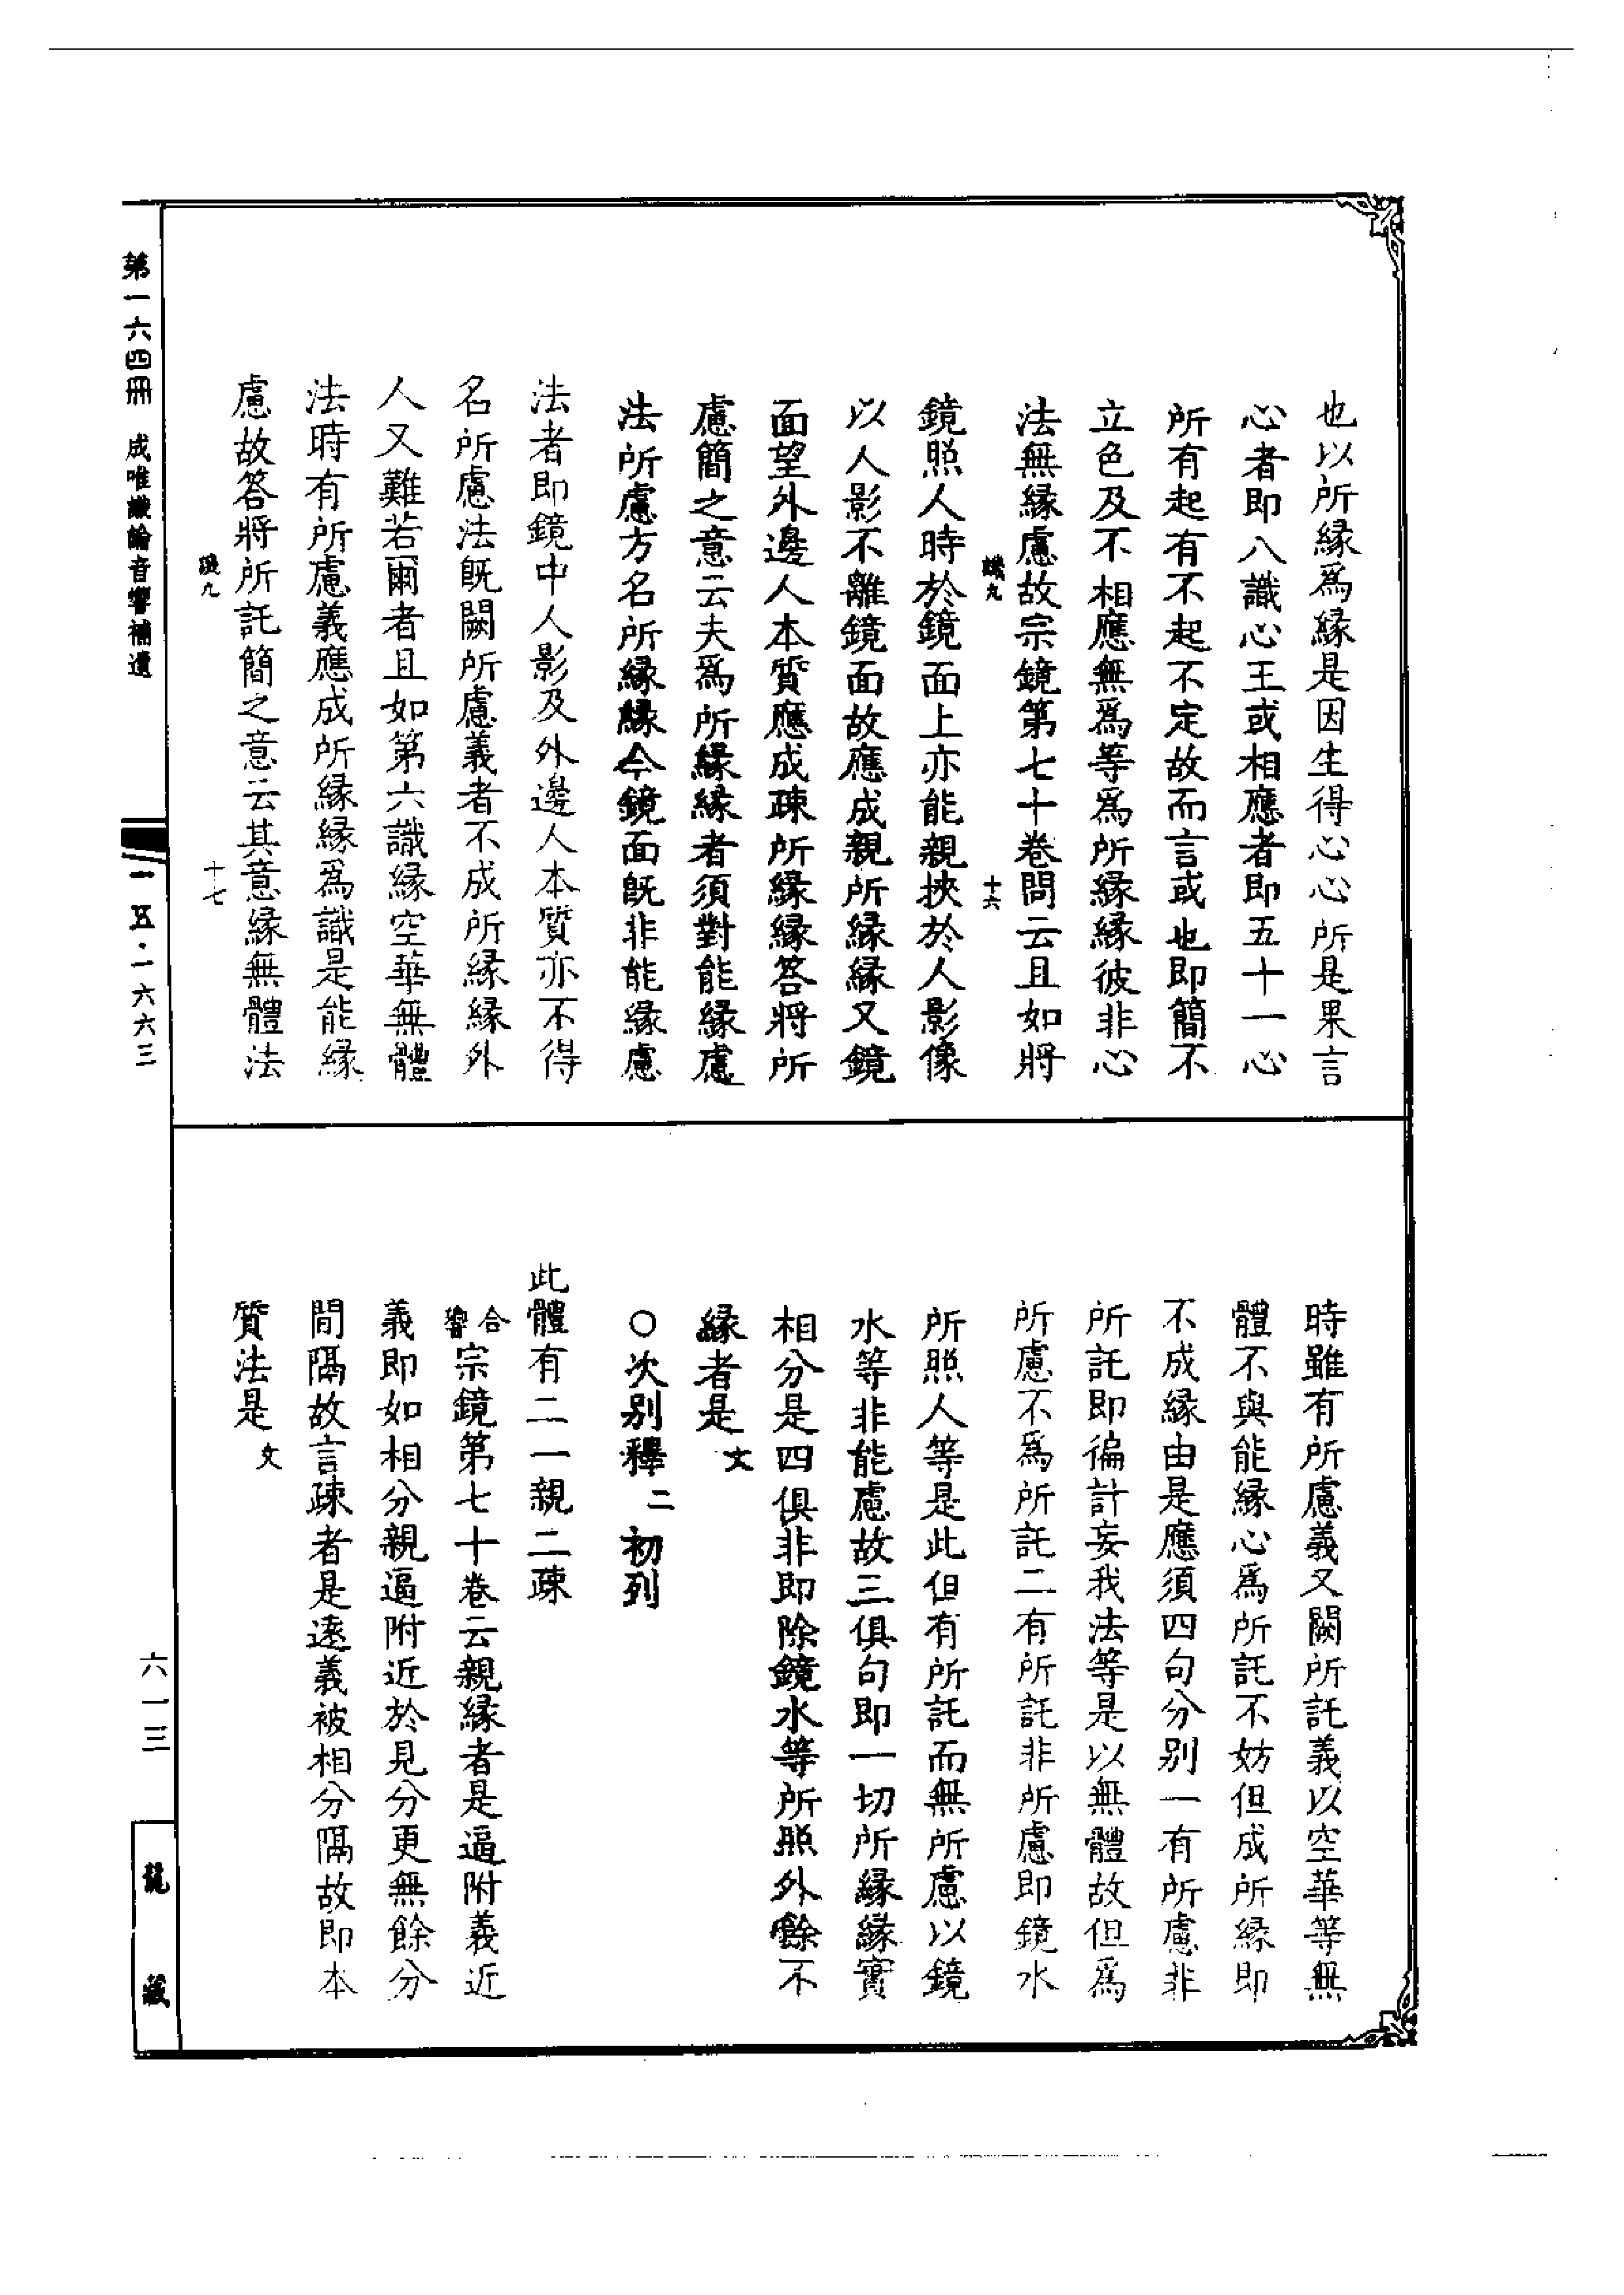 也以所緣爲緣是因生得心心所是果言
心者即八識心王或相應者即五十一心
所有起有不起不定故而言或也即簡不
立色及不相應無爲等爲所緣緣彼非心
法無緣慮故宗鏡第七十卷問云且如將
九 十六
鏡照人時於鏡面上亦能親挾於人影像
以人影不離鏡面故應成親所緣緣又鏡
面望外邊人本質應成疎所緣緣答將所
慮簡之意云夫爲所緣緣者須對能緣慮
法所慮方名所緣緣今鏡面旣非能緣慮
法者即鏡中人影及外邊人本質亦不得
名所慮法旣闕所慮義者不成所緣緣外
人又難若爾者且如第六識緣空華無體
法時有所慮義應成所緣緣爲識是能緣
慮故答將所託簡之意云其意緣無體法
九 十七
時雖有所慮義又闕所託義以空華等無
體不與能緣心爲所託不妨但成所緣即
不成緣由是應須四句分別一有所慮非
所託即徧計妄我法等是以無體故但爲
所慮不爲所託二有所託非所慮即鏡水
所照人等是此但有所託而無所慮以鏡
水等非能慮故三俱句即一切所緣緣實
相分是四俱非即除鏡水等所照外餘不
緣者是 文
○次別釋 二 初列
此體有二一親二疎
合響宗鏡第七十卷云親緣者是逼附義近
義即如相分親逼附近於見分更無餘分
間隔故言疎者是遠義被相分隔故即本
質法是 文
第一六四冊 成唯識論音響補遺
一一五·一六六三
六一三
龍藏